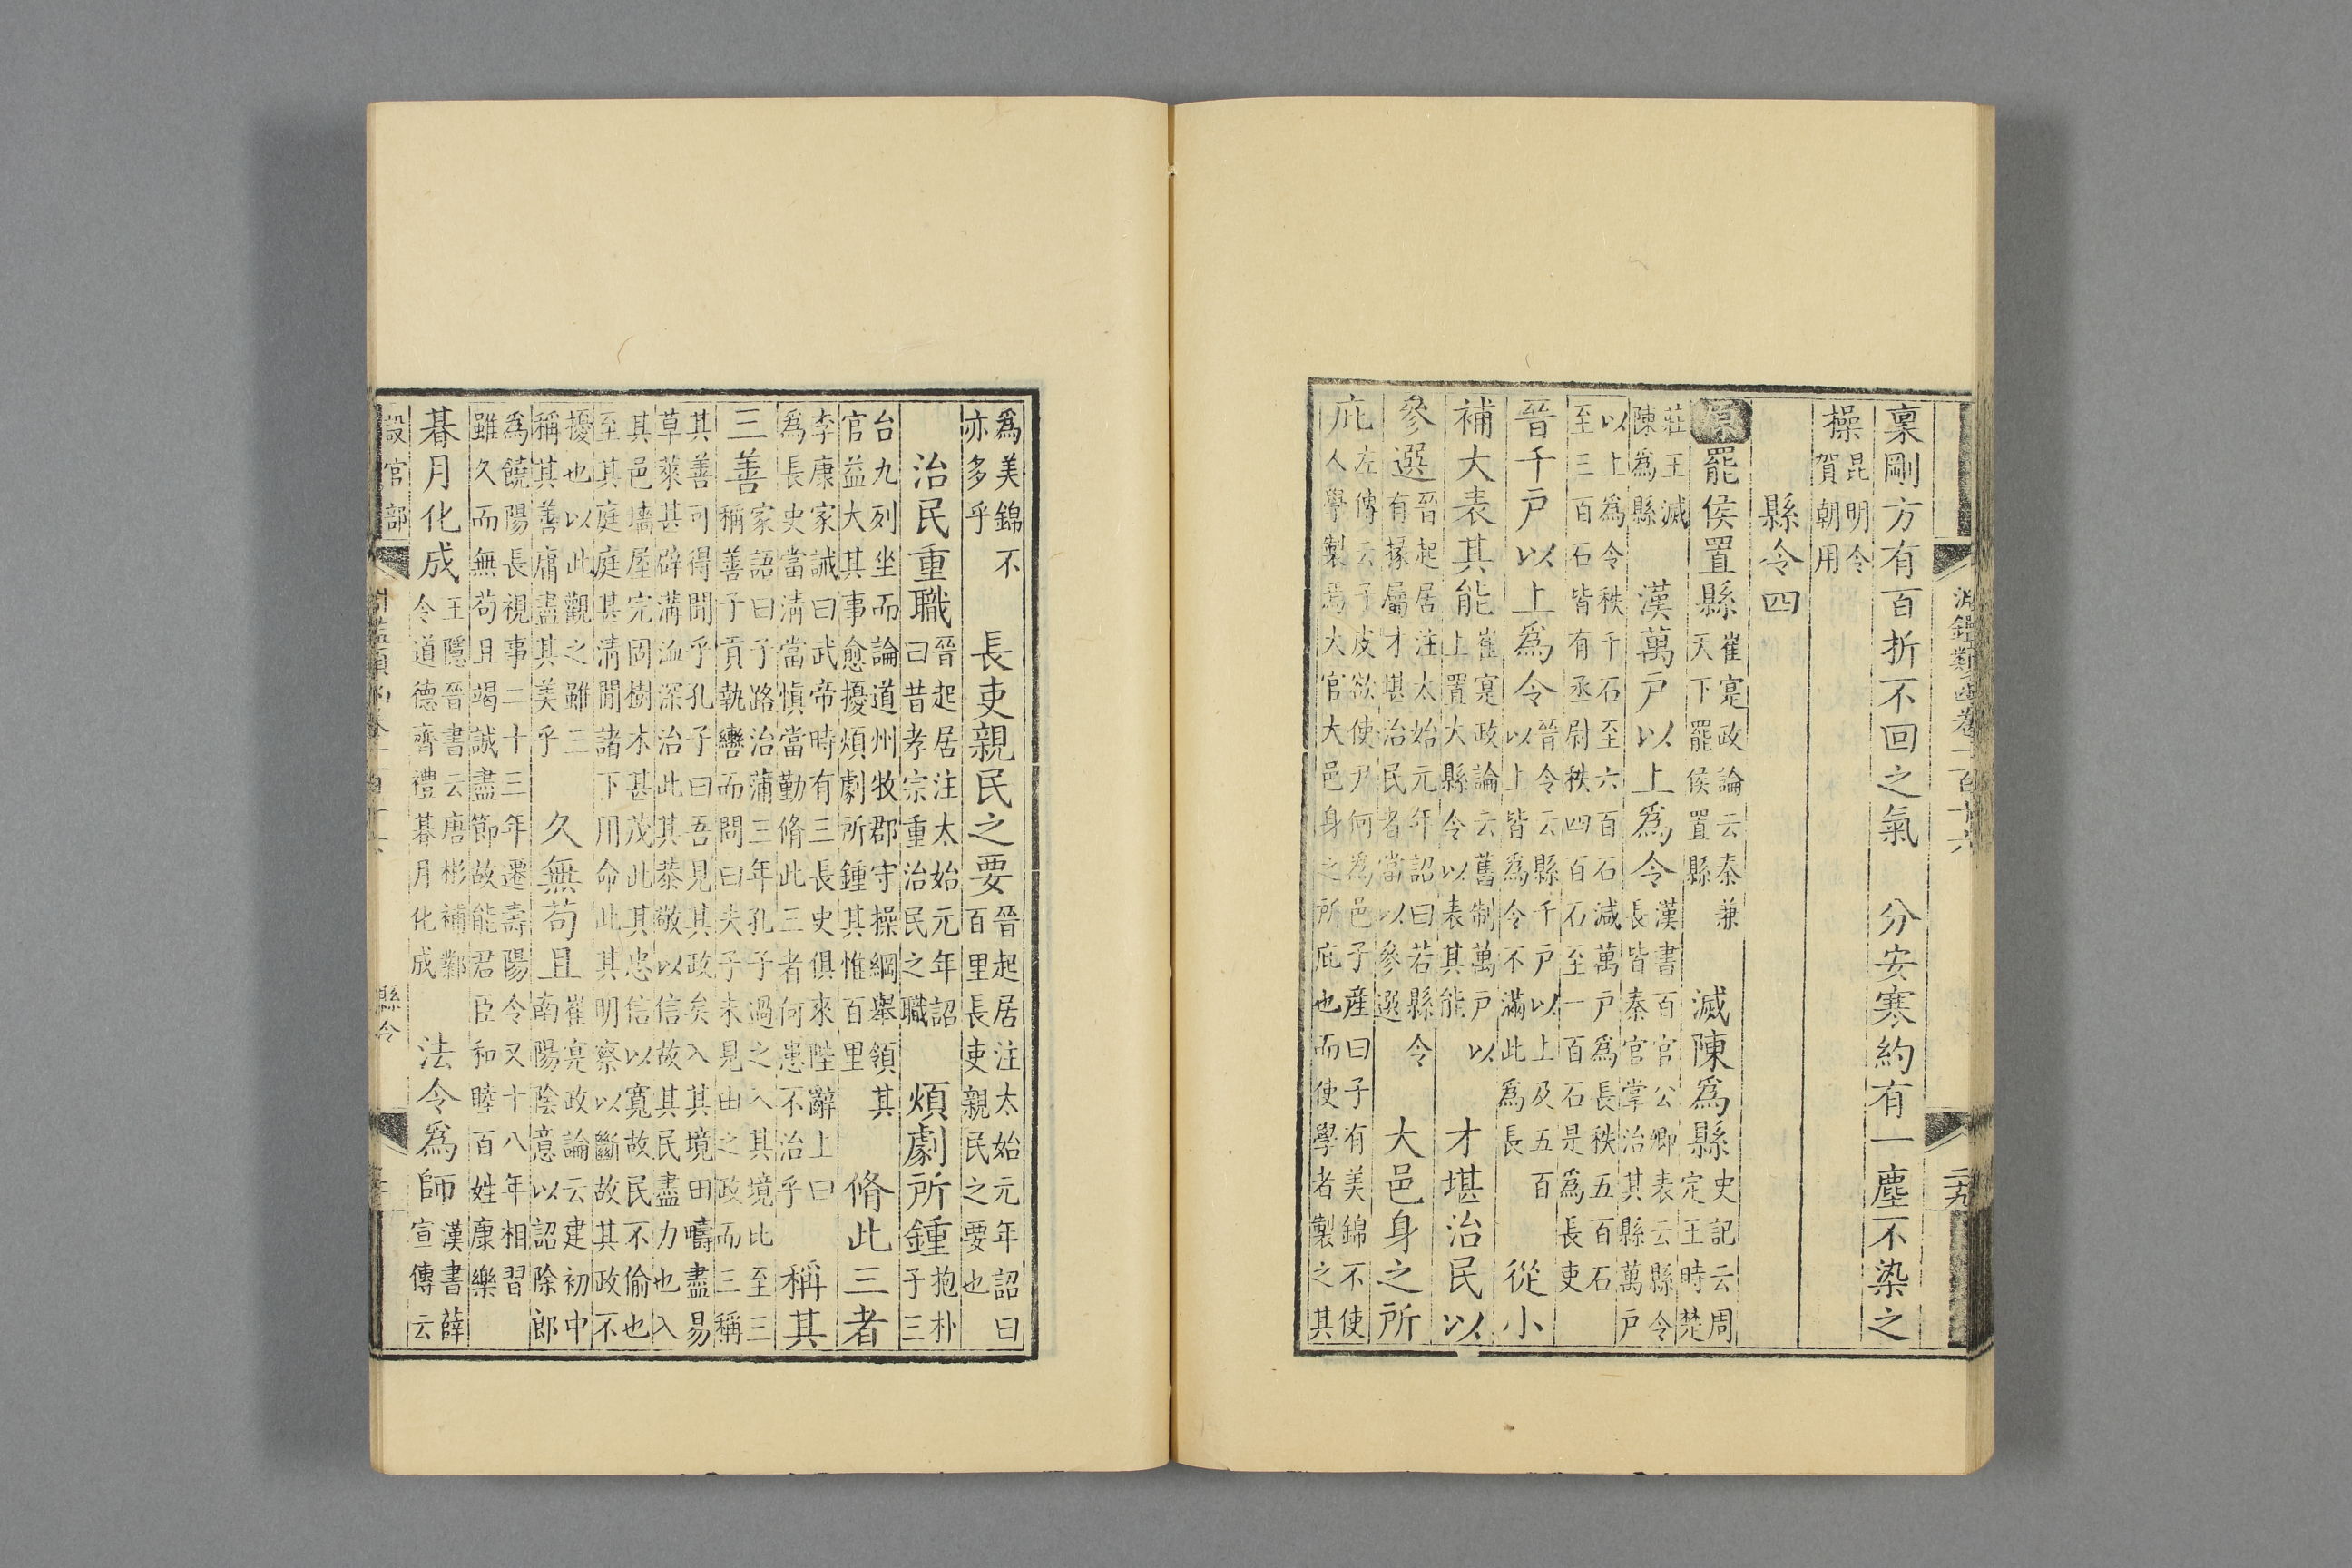 淵鑑類函卷一百十六 二十九
稟剛方有百折不回之氣　分安寒約有一塵不染之
操昆明令賀朝用
縣令四
原罷侯置縣崔寔政論云秦兼天下罷侯置縣　滅陳爲縣史記云周定王時楚
莊王滅陳爲縣　漢萬戸以上爲令漢書百官公卿表云縣令長皆秦官掌治其縣萬戸
以上爲令秩千石至六百石減萬戸爲長秩五百石至三百石皆有丞尉秩四百石至一百石是爲長吏
晉千戸以上爲令晉令云縣千戸以上及五百以上皆爲令不滿此爲長　從小
補大表其能崔寔政論云舊制萬戸以上置大縣令以表其能　才堪治民以
參選晉起居注太始元年詔曰若縣令有掾屬才堪治民者當以參選　大邑身之所
庇左傳云子皮欲使尹何爲邑子產曰子有美錦不使人學製焉大官大邑身之所庇也而使學者製之其
爲美錦不亦多乎　長吏親民之要晉起居注太始元年詔曰百里長吏親民之要也
治民重職晉起居注太始元年詔曰昔孝宗重治民之職　煩劇所鍾抱朴子三
台九列坐而論道州牧郡守操綱舉領其官益大其事愈擾煩劇所鍾其惟百里　脩此三者
李康家誡曰武帝時有三長史俱來陛辭上曰爲長史當淸當愼當勤脩此三者何患不治乎　稱其
三善家語曰子路治蒲三年孔子過之入其境此至三稱善子貢執轡而問曰夫子未見由之政而三稱
其善可得聞乎孔子曰吾見其政矣入其境田疇盡易草萊甚辟溝洫深治此其恭敬以信故其民盡力也入
其邑墻屋完固樹木甚茂此其忠信以寬故民不偷也至其庭庭甚淸閒諸下用命此其明察以斷故其政不
擾也以此觀之雖三稱其善庸盡其美乎　久無苟且崔寔政論云建初中南陽陰意以詔除郎
爲饒陽長視事二十三年遷壽陽令又十八年相習雖久而無苟且竭誠盡節故能君臣和睦百姓康樂
朞月化成王隱晉書云唐彬補鄴令道德齊禮朞月化成　法令爲師漢書薛宣傳云
設官部　縣令